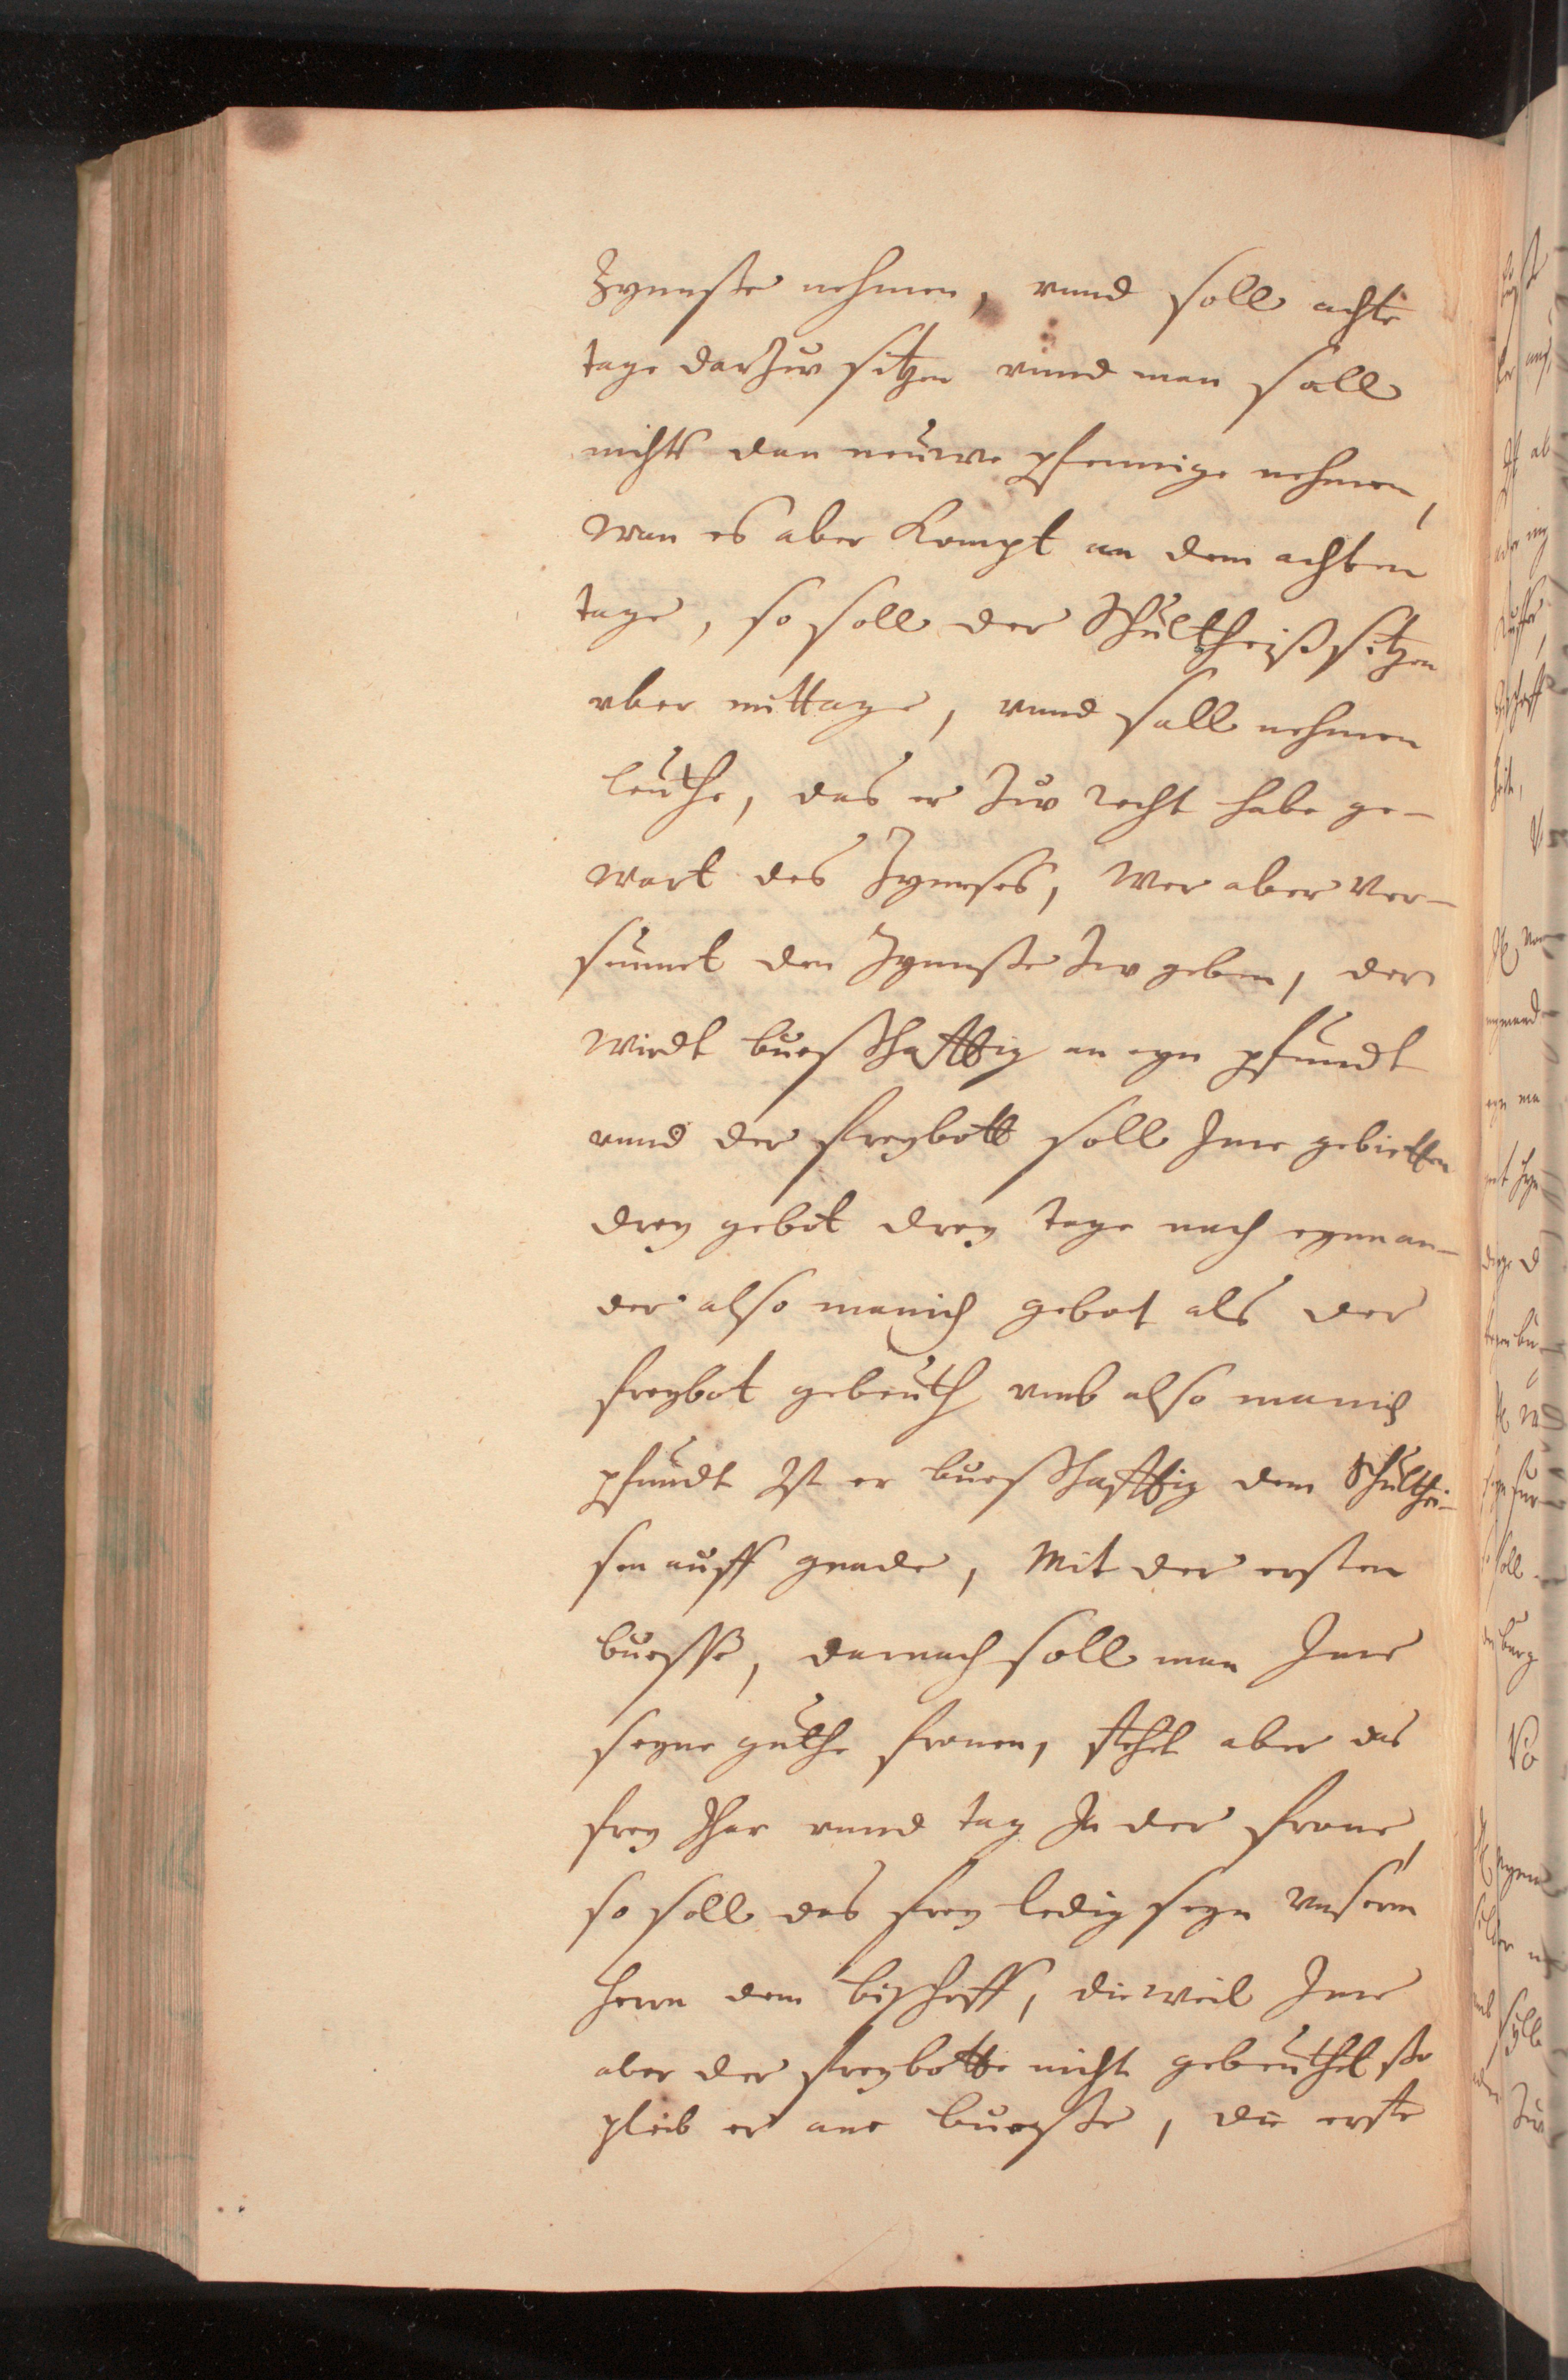 Zynnße nehmen, vnnd soll achte
tage darzuv sitzen vnnd man soll
nichts dan neuwe pfennige nehmen,
wan es aber kompt an dem achten
tage, so soll der Schultheiß sitzen
vber mittage, vnnd soll nehmen
leuthe, das er zuv recht habe ge-
wart des Zynnses, Wer aber ver-
sumet den Zynnße zuv geben, der
wirdt buesschafftig an eyn pfundt
vnnd der freybott soll Ime gebietten
drey gebot drey tage nach eynnan-
der also manich gebot als der
freybot gebeuth vmb also manich
pfundt Ist er buesschafftig dem Schulthei-
sen auff gnade, Mit der ersten
buesse, darnach soll man Ime
seyne guthe fronen, stehet aber das
frey Jhar vnnd tag In der frone,
so soll das frey ledig seyn vnserm
herrn dem bischoff, dieweil Ime
aber der freybotte nicht gebeuthet ßo
pleib er ane buesße, die erste